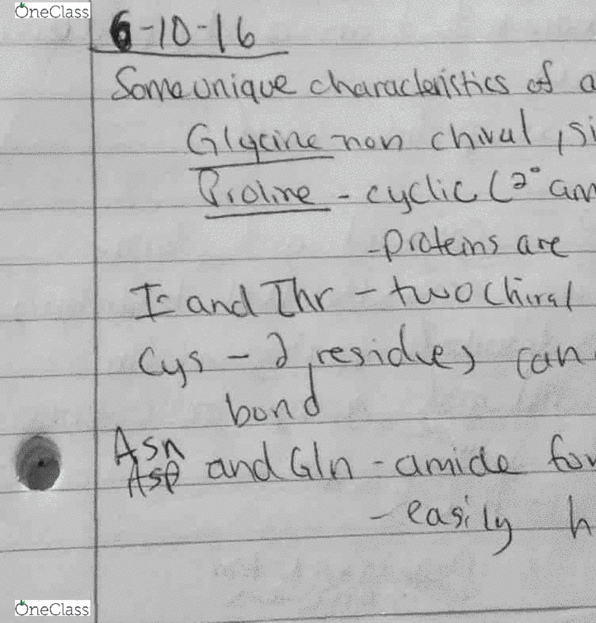 OneClass
6-10-16
Some unique characteristics of a
Glycine non chiral, si
Proline - cyclic (2° am
- proteins are
I and Thr - two chiral
Cys - 2 residues can
bond
Asn
Asp and Gln - amide for
- easily h
OneClass